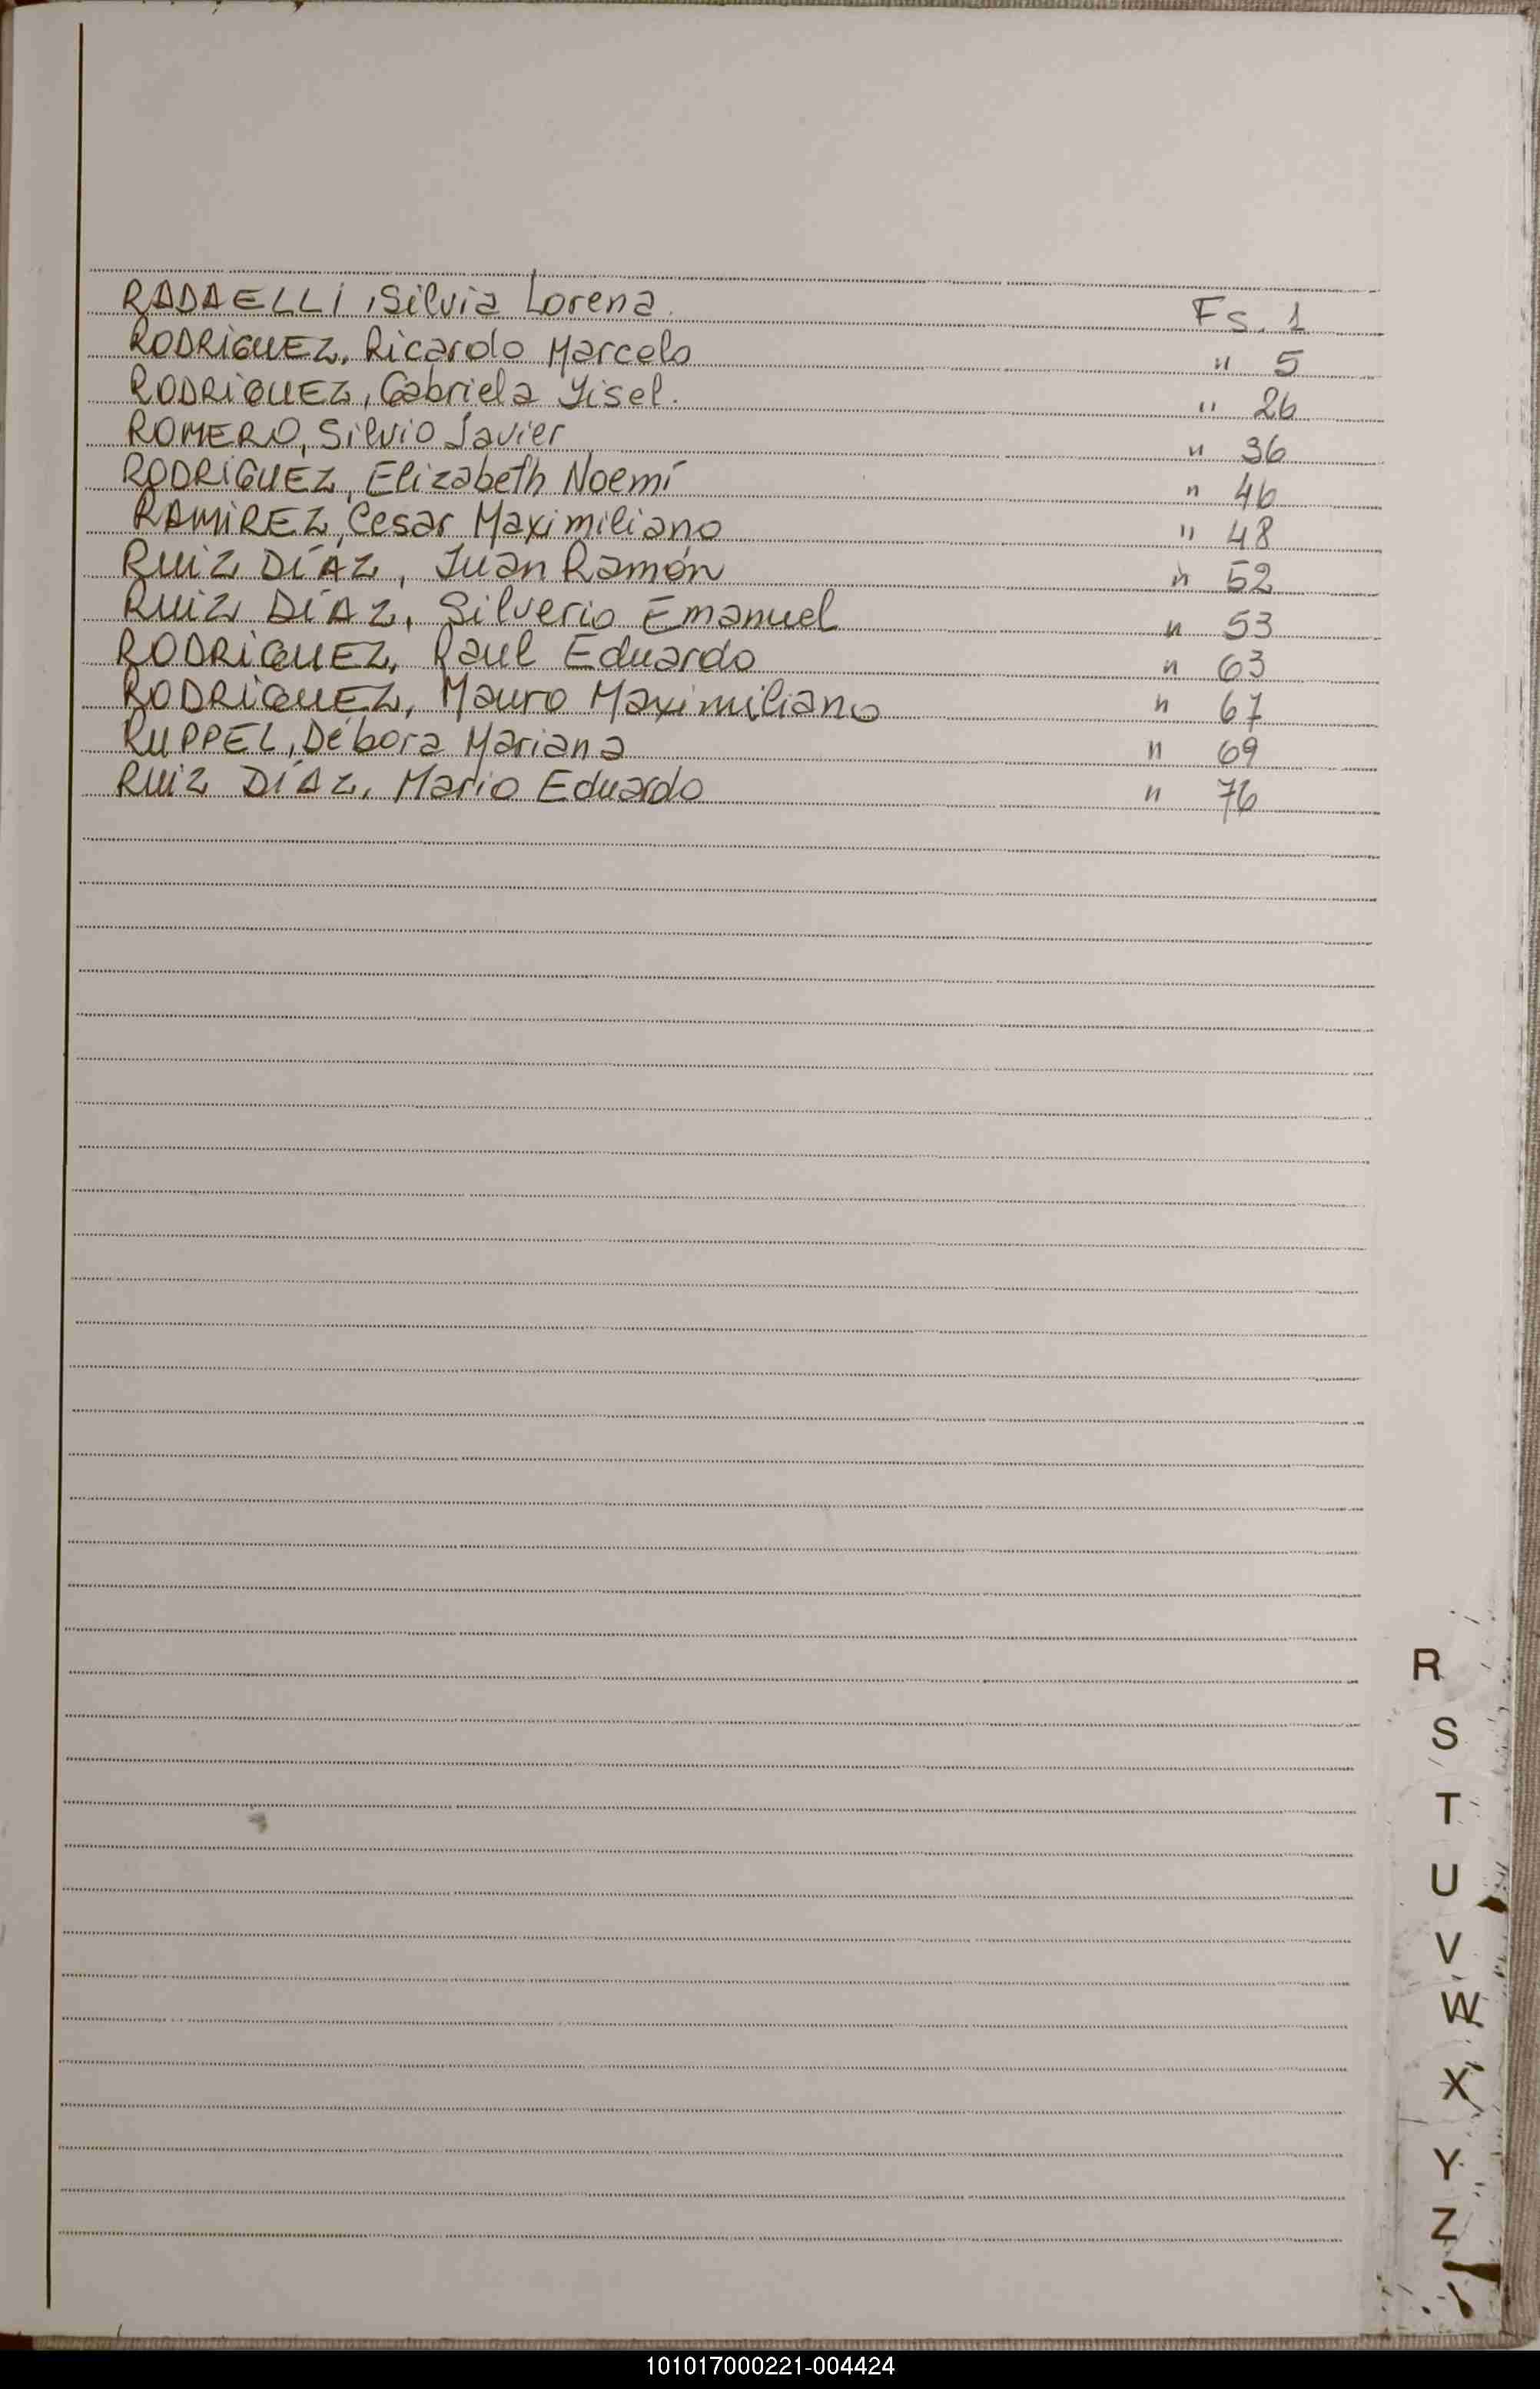 RADAELLI, Silvia Lorena. Fs. 1
RODRIGUEZ, Ricardo Marcelo " 5
RODRIGUEZ, Gabriela Yisel. " 26
ROMERO, Silvio Javier " 36
RODRÍGUEZ, Elizabeth Noemí " 46
RAMIREZ, Cesar Maximiliano " 48
RUIZ DÍAZ, Juan Ramón " 52
RUIZ DÍAZ, Silverio Emanuel " 53
RODRIGUEZ, Raul Eduardo " 63
RODRIGUEZ, Mauro Maximiliano " 67
RUPPEL, Débora Mariana " 69
RUIZ DÍAZ, Mario Eduardo " 76
R
S
T
U
V
W
X
Y
Z
101017000221-004424